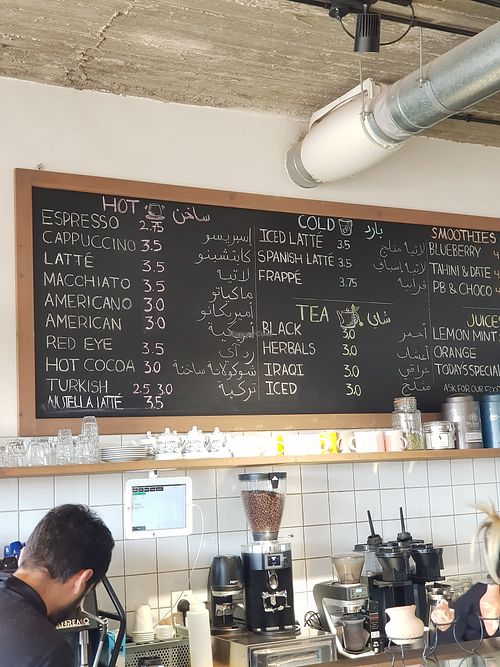 HOT ساخن
ESPRESSO 2.75 اسبريسو
CAPPUCCINO 3.5 كابتشينو
LATTÉ 3.5 لاتيه
MACCHIATO 3.5 ماكياتو
AMERICANO 3.0 أميريكانو
AMERICAN 3.0 أميركية
RED EYE 3.5 رد آي
HOT COCOA 3.0 شوكولاتة ساخنة
TURKISH 2.5 3.0 تركية
NUTELLA LATTÉ 3.5
COLD بارد
ICED LATTÉ 3.5 لاتية مثلج
SPANISH LATTÉ 3.5 لاتيه اسباني
FRAPPÉ 3.75 فرابيه
TEA شاي
BLACK 3.0 أحمر
HERBALS 3.0 أعشاب
IRAQI 3.0 عراقي
ICED 3.0 مثلج
SMOOTHIES
BLUEBERRY 4
TAHINI & DATE
PB & CHOCO
JUICE
LEMON MINT
ORANGE
TODAYS SPECIAL
ASK FOR OUR